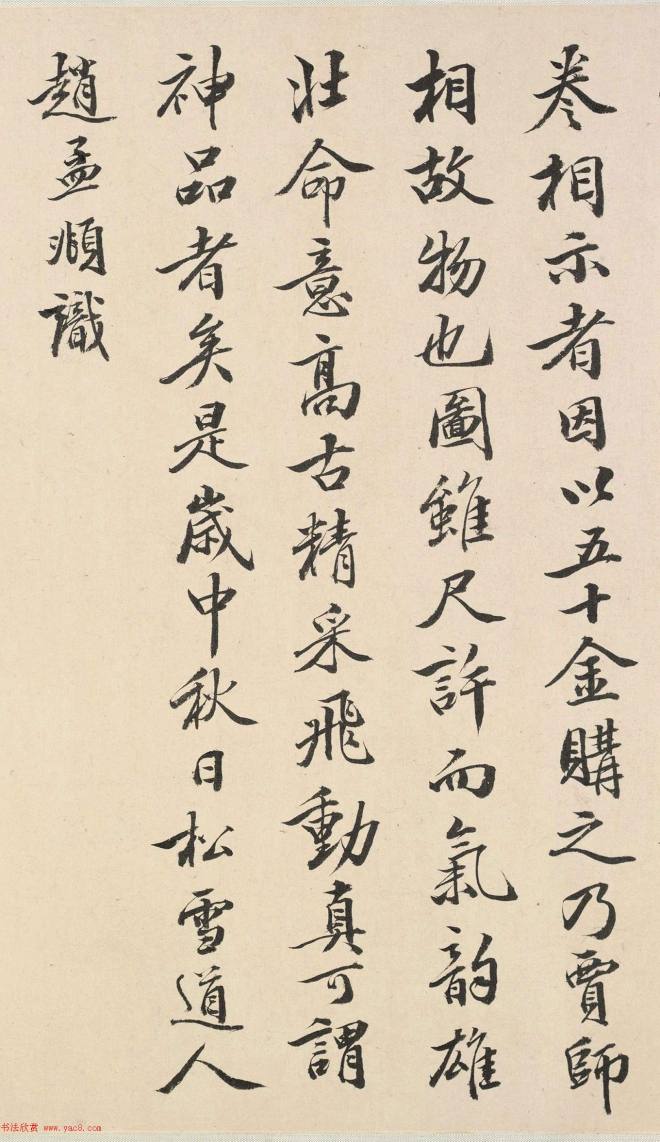 卷相示者因以五十金購之乃賈師
相故物也圖雖尺許而氣韵雄
壯命意高古精采飛動真可謂
神品者矣是歲中秋日松雪道人
趙孟頫識
书法欣赏 www.yac8.com